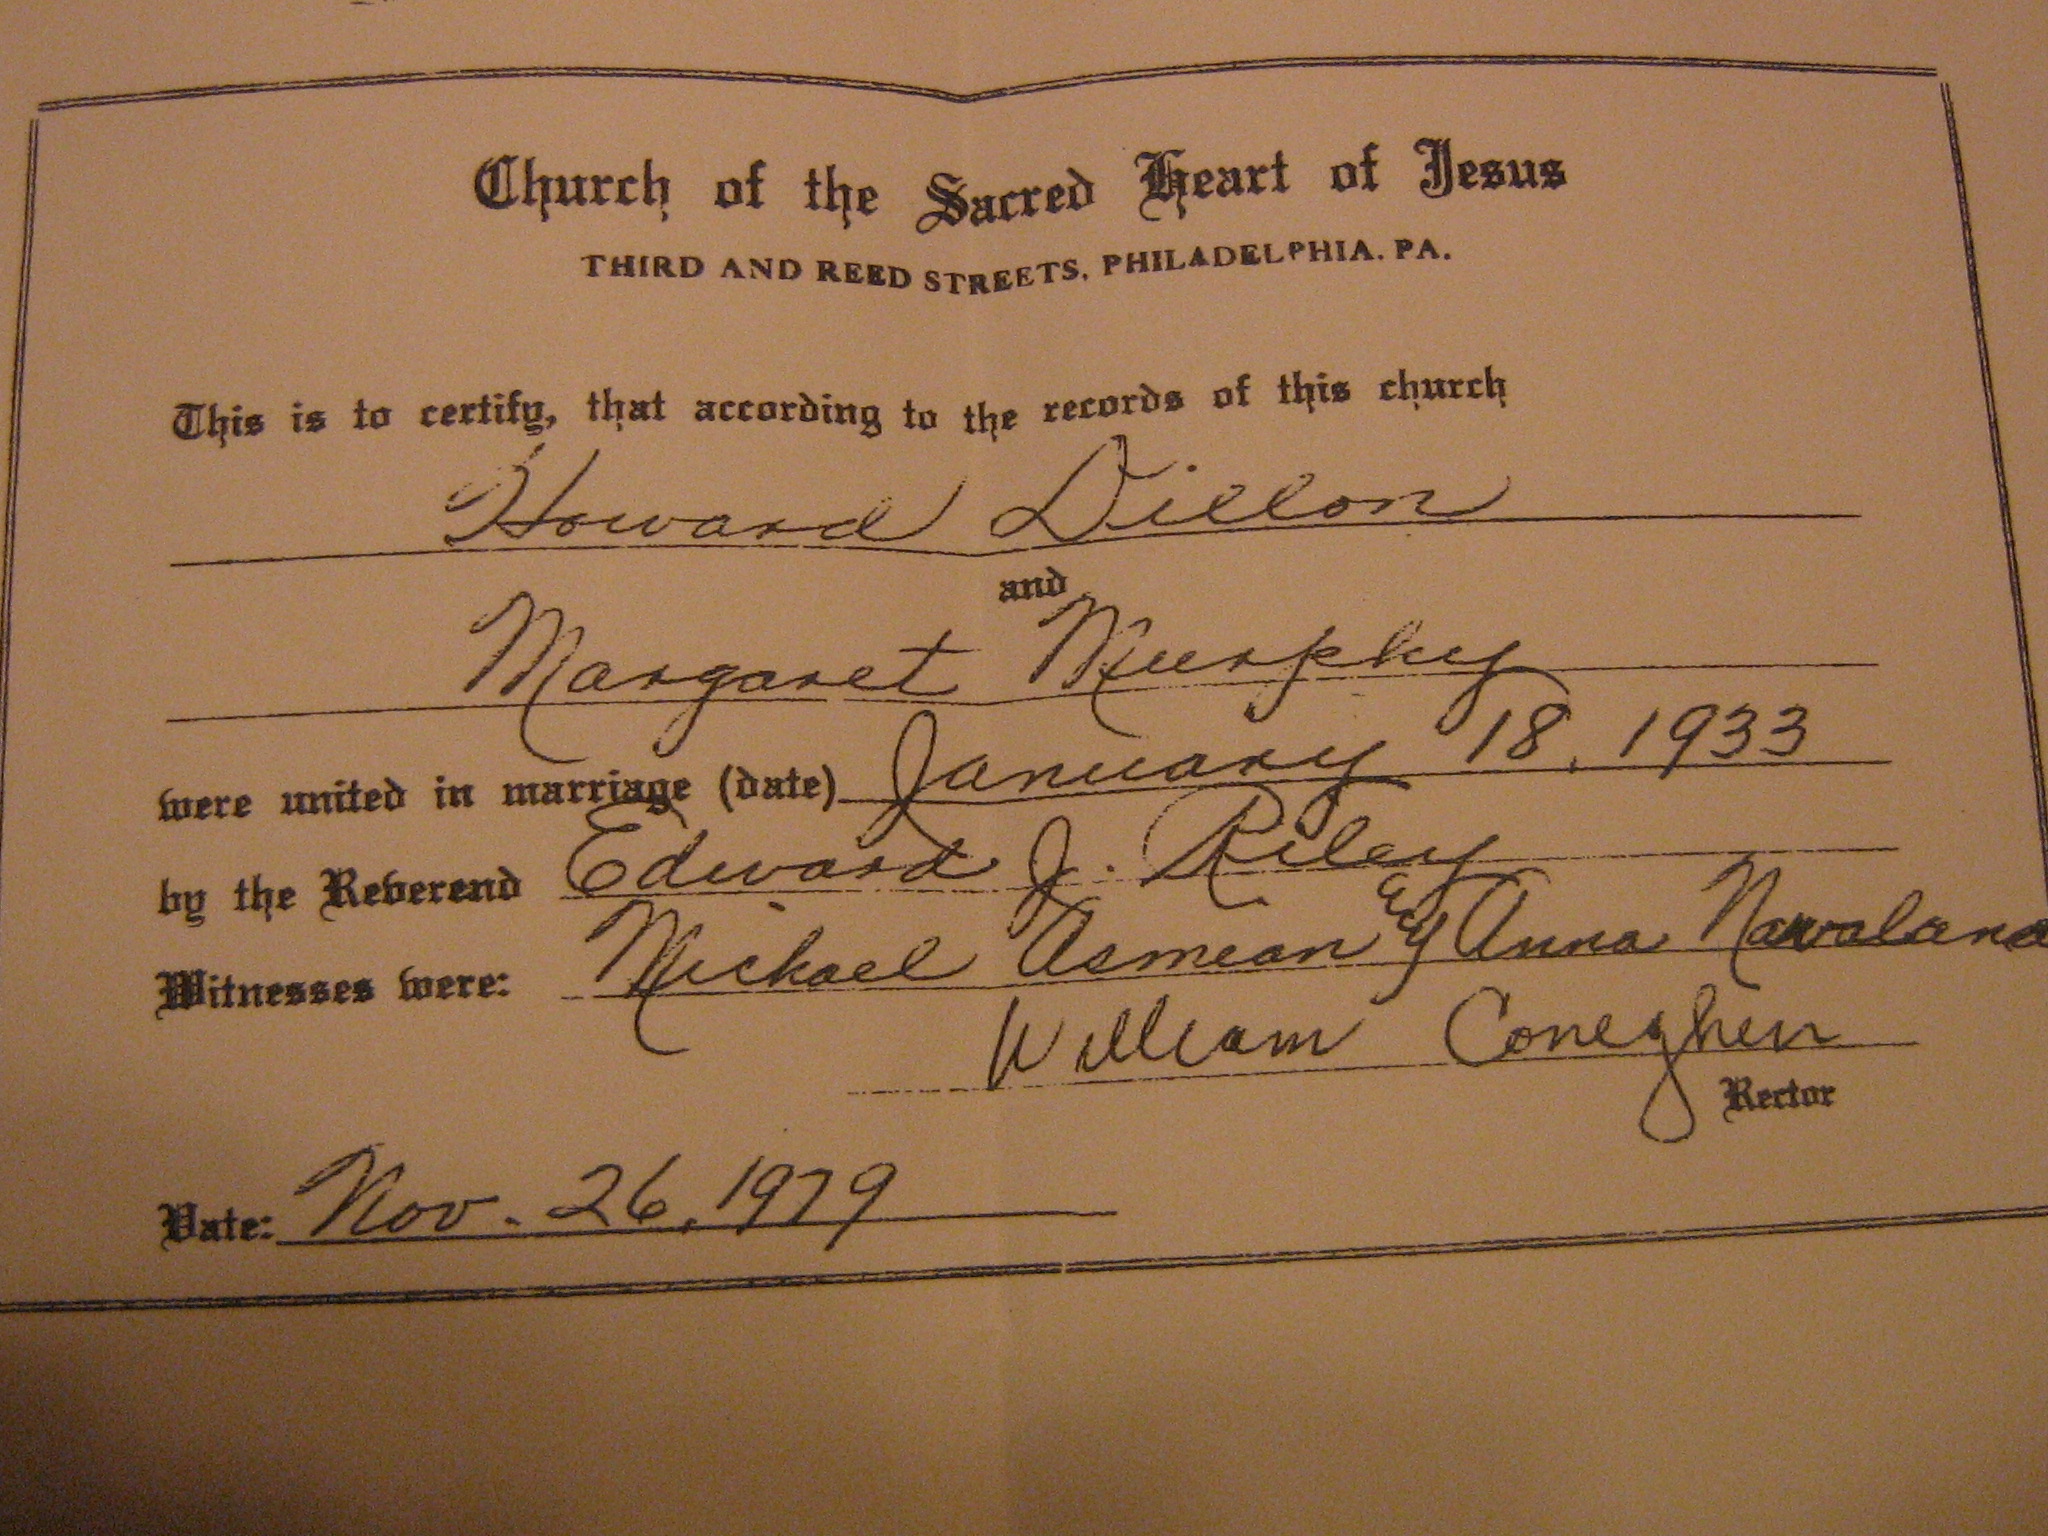 Church of the Sacred Heart of Jesus
THIRD AND REED STREETS, PHILADELPHIA, PA.
This is to certify, that according to the records of this church
Howard Dillon
and
Margaret Murphy
were united in marriage (date) January 18, 1933
by the Reverend Edward J. Riley
Witnesses were: Michael Asmean & Anna
William
Rector
Date: Nov. 26, 1979